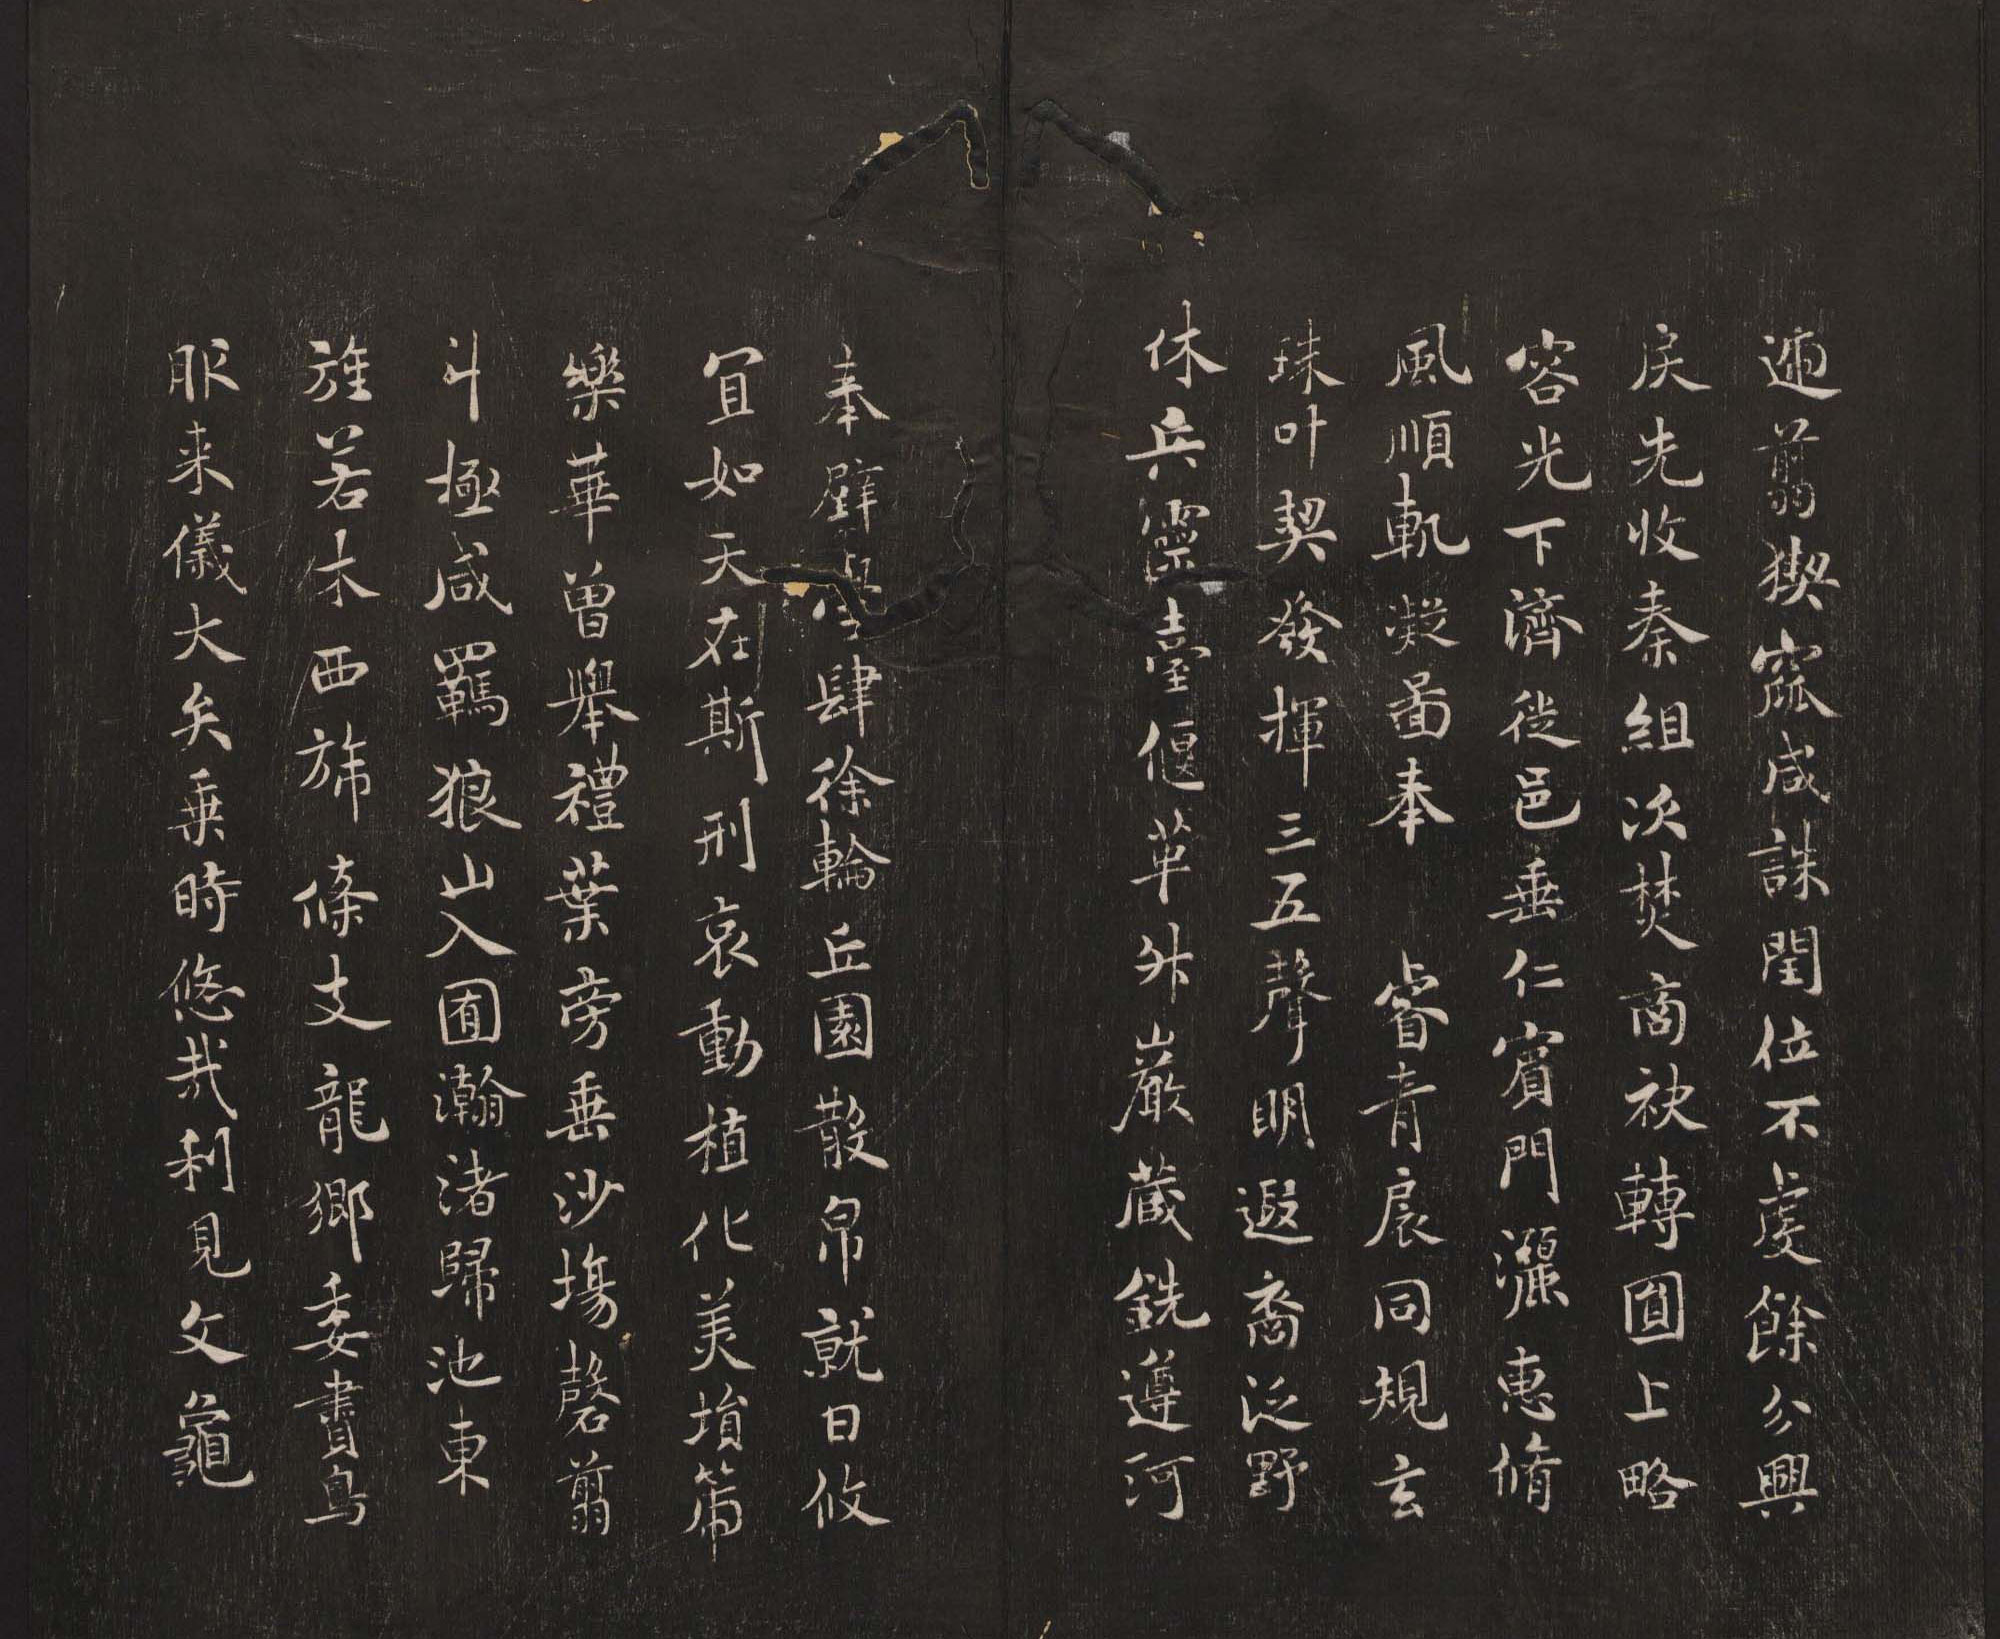 遞翦猰窳咸誅閏位不虔餘分興
戾先收秦組次焚商袂轉圓上略
容光下濟從邑垂仁賓門灑惠脩
風順軌凝啚奉 睿青扆同規玄
珠叶契發揮三五聲明遐裔泛野
休兵靈臺偃革舛巖藏銑遵河
奉璧學肆徐輪丘園散帛就日攸
宜如天在斯刑哀動植化美塤箎
樂華曾舉禮葉旁垂沙塲磬翦
斗極咸羈狼山入囿瀚渚歸池東
旌若木西旆條支龍鄉委賮鳥
服来儀大矣乗時悠哉利見文龜